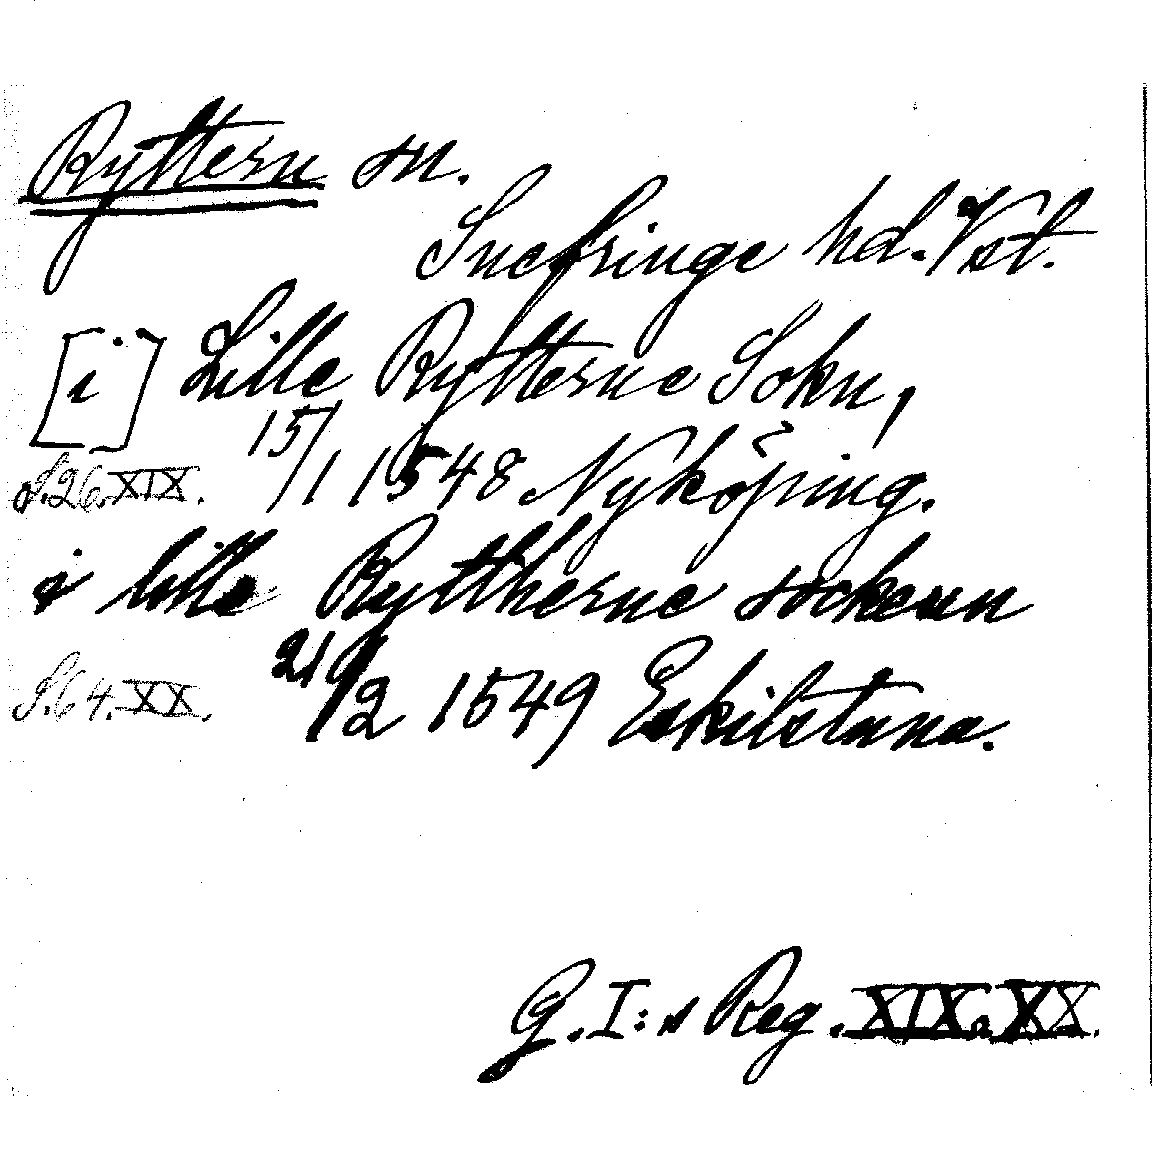 Ryttern sn.
Snefringe hd. Vstl.
[i] Lille Rytterne Sokn,
S.26. XIX. 15/1 1548 Nyköping.
i lille Ryttherne sockenn
S.64. XX. 21/2 1549 Eskilstuna.
G.I:s Reg. XIX. XX.